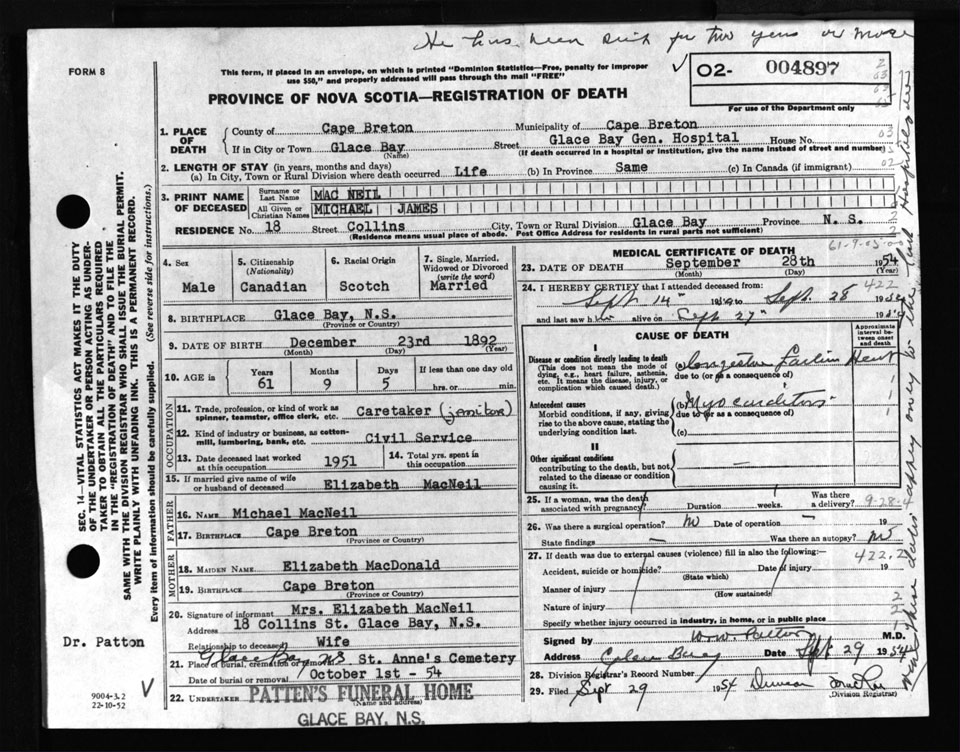 He has been sick for two years or more
FORM 8
This form, if placed in an envelope, on which is printed "Dominion Statistics—Free, penalty for improper
use $50," and properly addressed will pass through the mail "FREE"
O2- 004897
For use of the Department only
PROVINCE OF NOVA SCOTIA—REGISTRATION OF DEATH
1. PLACE OF DEATH
County of Cape Breton Municipality of Cape Breton
If in City or Town Glace Bay Street Glace Bay Gen. Hospital House No.
(Name) (If death occurred in a hospital or institution, give the name instead of street and number)
2. LENGTH OF STAY (in years, months and days)
(a) In City, Town or Rural Division where death occurred Life (b) In Province Same (c) In Canada (if immigrant)
3. PRINT NAME OF DECEASED
Surname or Last Name MAC NEIL
All Given or Christian Names MICHAEL JAMES
RESIDENCE No. 18 Street Collins City, Town or Rural Division Glace Bay Province N. S.
(Residence means usual place of abode. Post Office Address for residents in rural parts not sufficient)
4. Sex Male
5. Citizenship (Nationality) Canadian
6. Racial Origin Scotch
7. Single, Married, Widowed or Divorced (write the word) Married
8. BIRTHPLACE Glace Bay, N.S.
(Province or Country)
9. DATE OF BIRTH December 23rd 1892
(Month) (Day) (Year)
10. AGE in Years 61 Months 9 Days 5 If less than one day old hrs. or min.
OCCUPATION
11. Trade, profession, or kind of work as spinner, teamster, office clerk, etc. Caretaker (janitor)
12. Kind of industry or business, as cotton-mill, lumbering, bank, etc. Civil Service
13. Date deceased last worked at this occupation 1951
14. Total yrs. spent in this occupation
15. If married give name of wife or husband of deceased Elizabeth MacNeil
FATHER
16. NAME Michael MacNeil
17. BIRTHPLACE Cape Breton
(Province or Country)
MOTHER
18. MAIDEN NAME Elizabeth MacDonald
19. BIRTHPLACE Cape Breton
(Province or Country)
20. Signature of informant Mrs. Elizabeth MacNeil
Address 18 Collins St. Glace Bay, N.S.
Relationship to deceased Wife
21. Place of burial, cremation or removal Glace Bay NS St. Anne's Cemetery
Date of burial or removal October 1st - 54
22. UNDERTAKER PATTEN'S FUNERAL HOME
(Name and address)
GLACE BAY, N.S.
MEDICAL CERTIFICATE OF DEATH
23. DATE OF DEATH September 28th 1954
(Month) (Day) (Year)
24. I HEREBY CERTIFY that I attended deceased from 422
Sept 14" 1954 to Sept. 28 1954
and last saw him alive on Sept 27" 1954
CAUSE OF DEATH
Approximate interval between onset and death
I
Disease or condition directly leading to death
(This does not mean the mode of dying, e.g., heart failure, asthenia, etc. It means the disease, injury, or complication which caused death.)
(a) Congestive Failure Heart
due to (or as a consequence of)
Antecedent causes
Morbid conditions, if any, giving rise to the above cause, stating the underlying condition last.
(b) Myocarditis
due to (or as a consequence of)
(c)
II
Other significant conditions
contributing to the death, but not related to the disease or condition causing it.
25. If a woman, was the death associated with pregnancy? Duration weeks. Was there a delivery?
26. Was there a surgical operation? No Date of operation 19
State findings Was there an autopsy? No
27. If death was due to external causes (violence) fill in also the following: 422.2
Accident, suicide or homicide? Date of injury 19
(State which)
Manner of injury
(How sustained)
Nature of injury
Specify whether injury occurred in industry, in home, or in public place
Signed by M.D.
Address Date Sept 29 1954
28. Division Registrar's Record Number
29. Filed Sept 29 1954 Duncan MacRae
(Division Registrar)
SEC. 14—VITAL STATISTICS ACT MAKES IT THE DUTY
OF THE UNDERTAKER OR PERSON ACTING AS UNDER-
TAKER TO OBTAIN ALL THE PARTICULARS REQUIRED
IN THE "REGISTRATION OF DEATH" AND TO FILE THE
SAME WITH THE DIVISION REGISTRAR WHO SHALL ISSUE THE BURIAL PERMIT.
WRITE PLAINLY WITH UNFADING INK. THIS IS A PERMANENT RECORD.
Every item of information should be carefully supplied. (See reverse side for instructions.)
Dr. Patton
9004-3.2
22-10-52